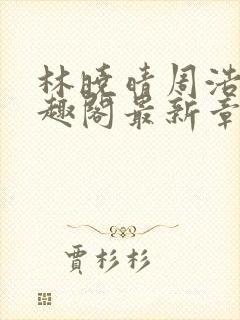 林晓晴周浩
趣阁最新章
贾杉杉